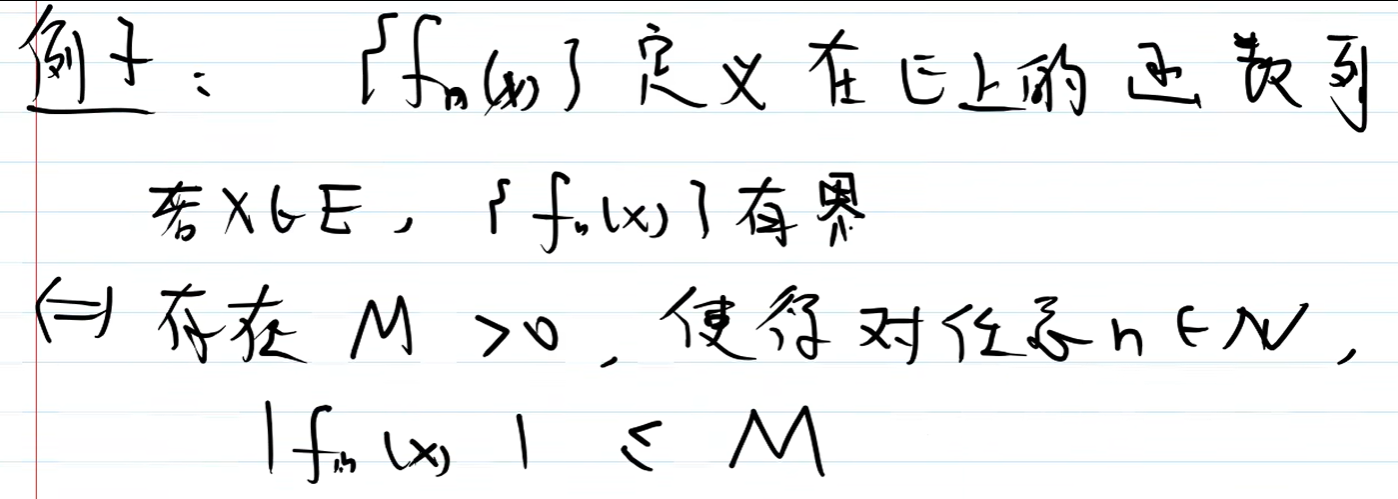 例子： {fₙ(x)} 定义在E上的函数列
若x∈E，{fₙ(x)}有界
⟺ 存在 M >0，使得对任意n∈N，
|fₙ(x)| ≤ M